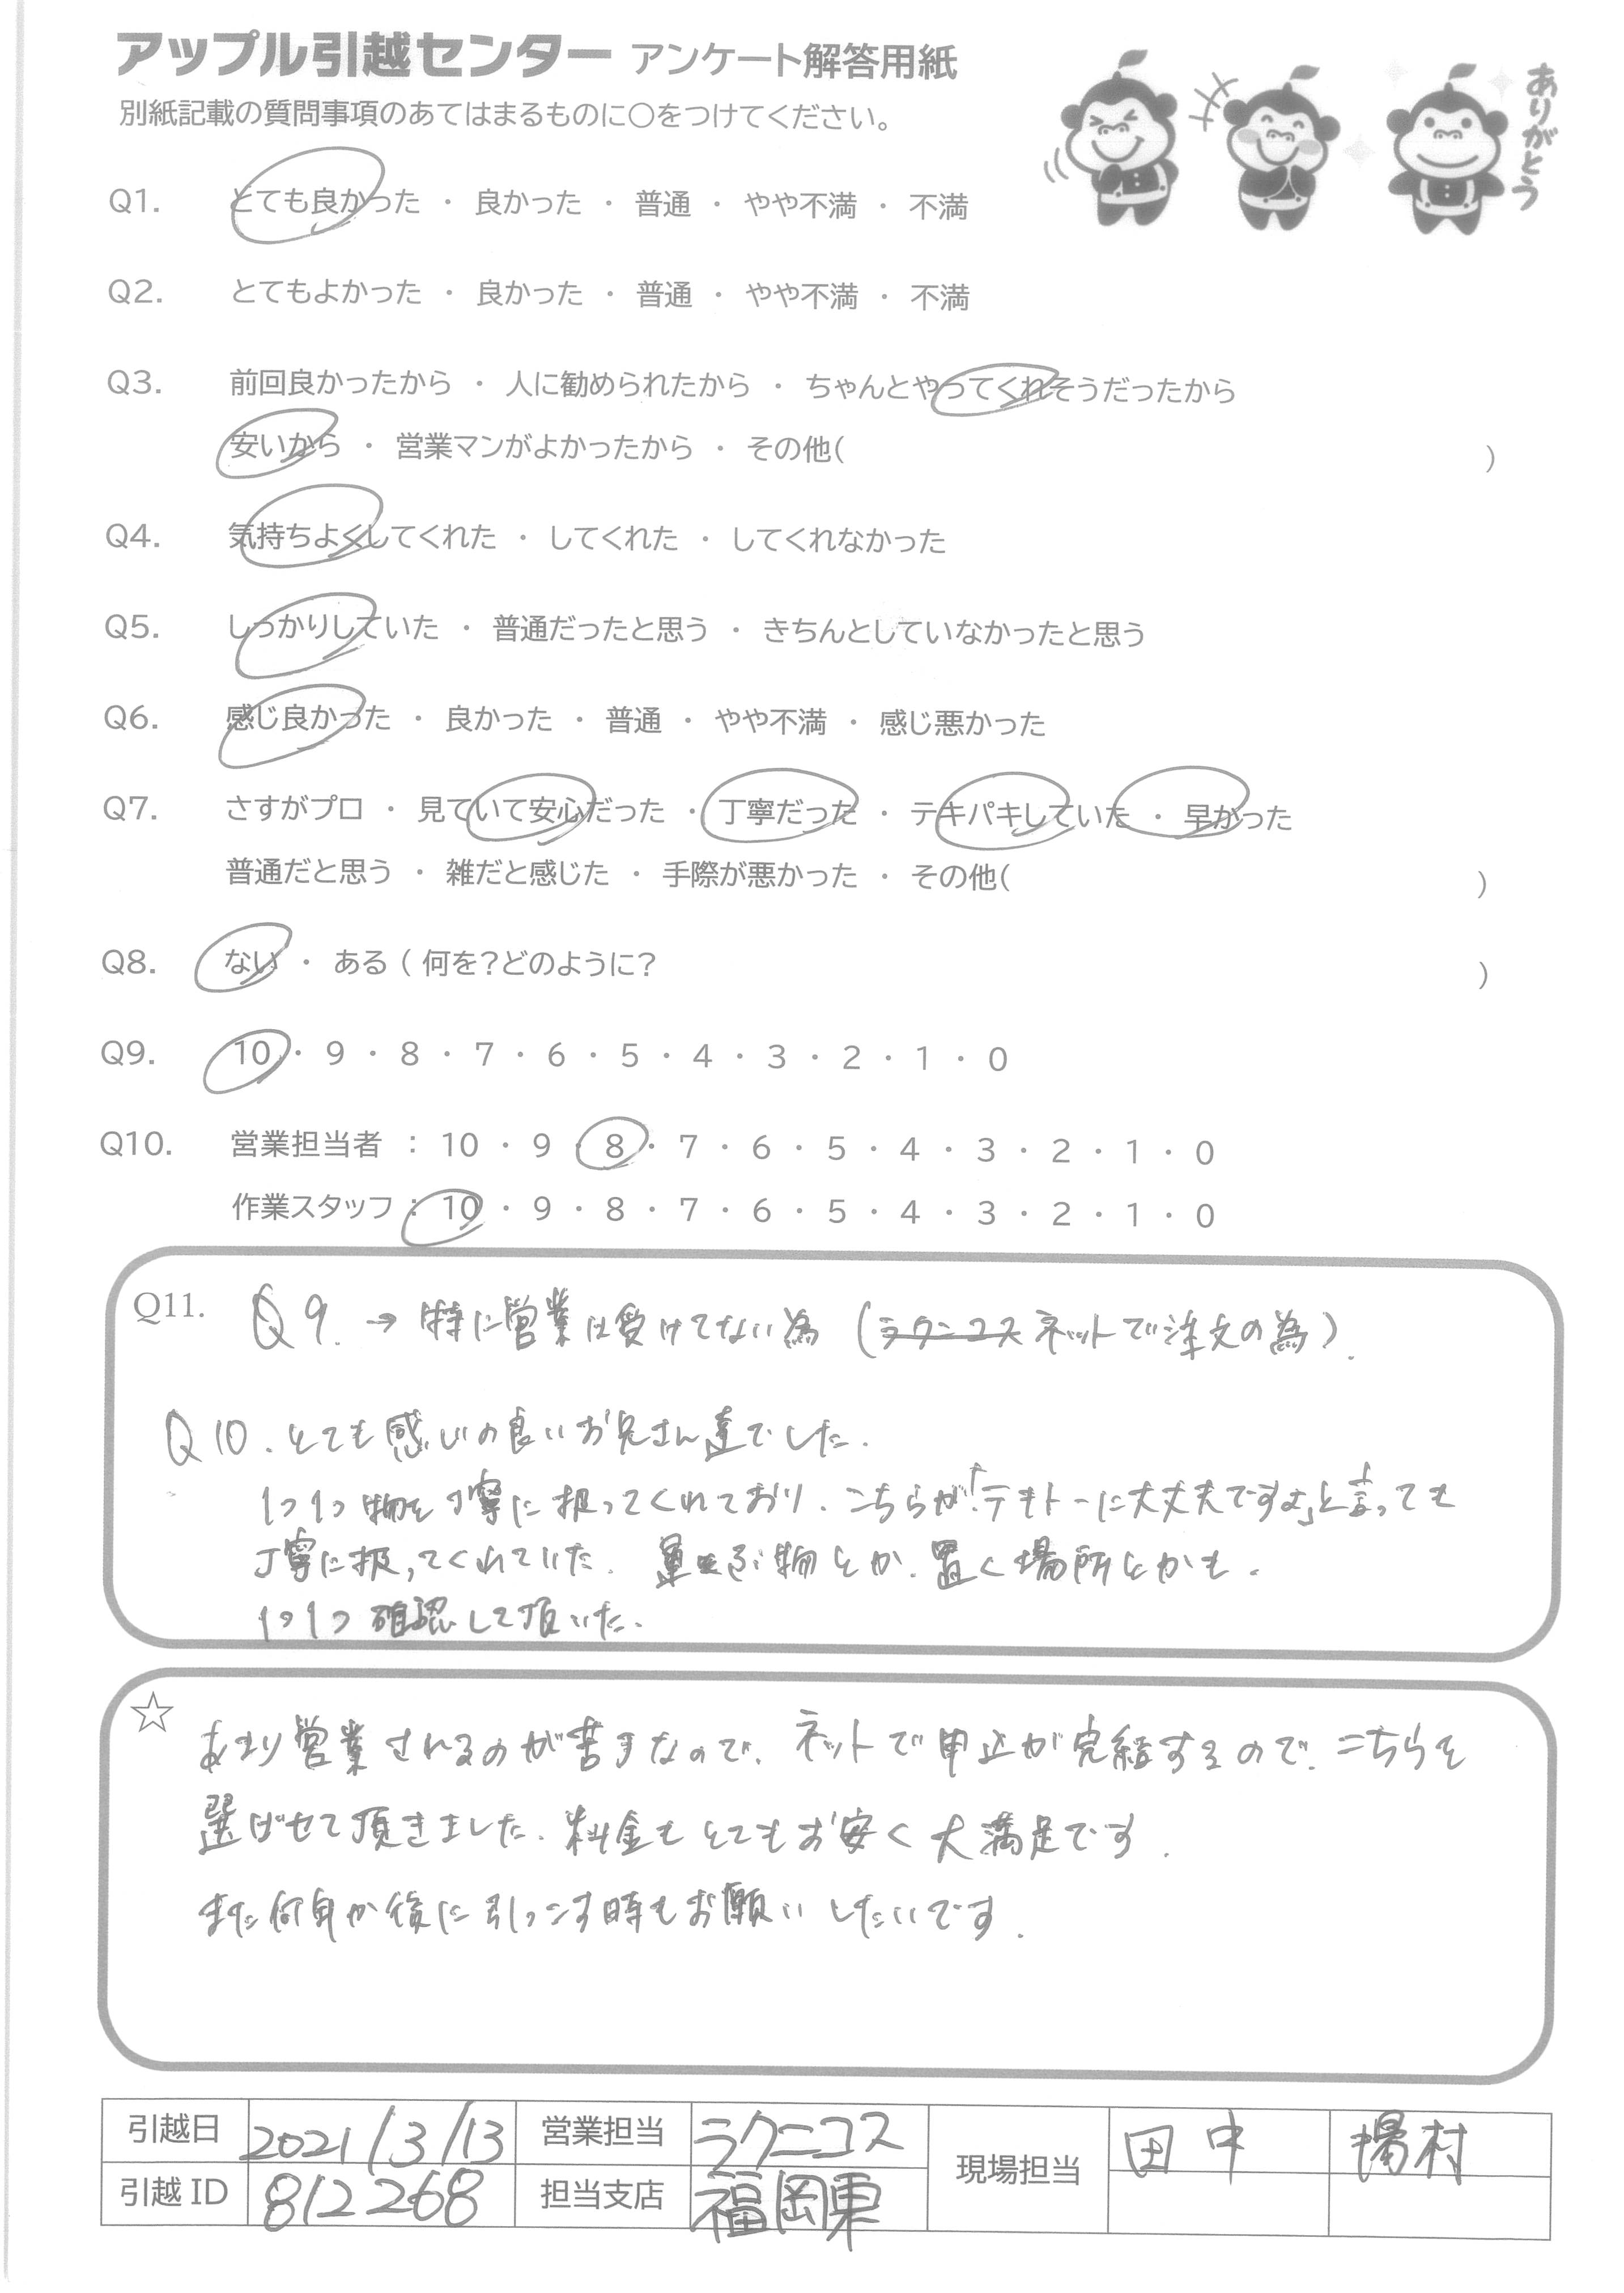 アップル引越センター アンケート解答用紙
別紙記載の質問事項のあてはまるものに○をつけてください。
ありがとう
Q1. とても良かった ・ 良かった ・ 普通 ・ やや不満 ・ 不満
Q2. とてもよかった ・ 良かった ・ 普通 ・ やや不満 ・ 不満
Q3. 前回良かったから ・ 人に勧められたから ・ ちゃんとやってくれそうだったから
安いから ・ 営業マンがよかったから ・ その他( )
Q4. 気持ちよくしてくれた ・ してくれた ・ してくれなかった
Q5. しっかりしていた ・ 普通だったと思う ・ きちんとしていなかったと思う
Q6. 感じ良かった ・ 良かった ・ 普通 ・ やや不満 ・ 感じ悪かった
Q7. さすがプロ ・ 見ていて安心だった ・ 丁寧だった ・ テキパキしていた ・ 早かった
普通だと思う ・ 雑だと感じた ・ 手際が悪かった ・ その他( )
Q8. ない ・ ある ( 何を?どのように? )
Q9. 10 ・ 9 ・ 8 ・ 7 ・ 6 ・ 5 ・ 4 ・ 3 ・ 2 ・ 1 ・ 0
Q10. 営業担当者 : 10 ・ 9 ・ 8 ・ 7 ・ 6 ・ 5 ・ 4 ・ 3 ・ 2 ・ 1 ・ 0
作業スタッフ : 10 ・ 9 ・ 8 ・ 7 ・ 6 ・ 5 ・ 4 ・ 3 ・ 2 ・ 1 ・ 0
Q11. Q9. → 特に営業は受けてない為 (ラクニコス ネットで注文の為).
Q10. とても感じの良いお兄さん達でした.
1つ1つ物を丁寧に扱ってくれており. こちらが「テキトーに大丈夫ですよ」と言っても
丁寧に扱ってくれていた. 運ぶ物とか. 置く場所とかも.
1つ1つ確認して頂いた.
☆ あまり営業されるのが苦手なので. ネットで申込が完結するので. こちらを
選ばせて頂きました. 料金もとてもお安く大満足です.
また何年か後に引っこす時もお願いしたいです.
引越日 2021/3/13 営業担当 ラクニコス 現場担当 田中 場村
引越 ID 812268 担当支店 福岡東